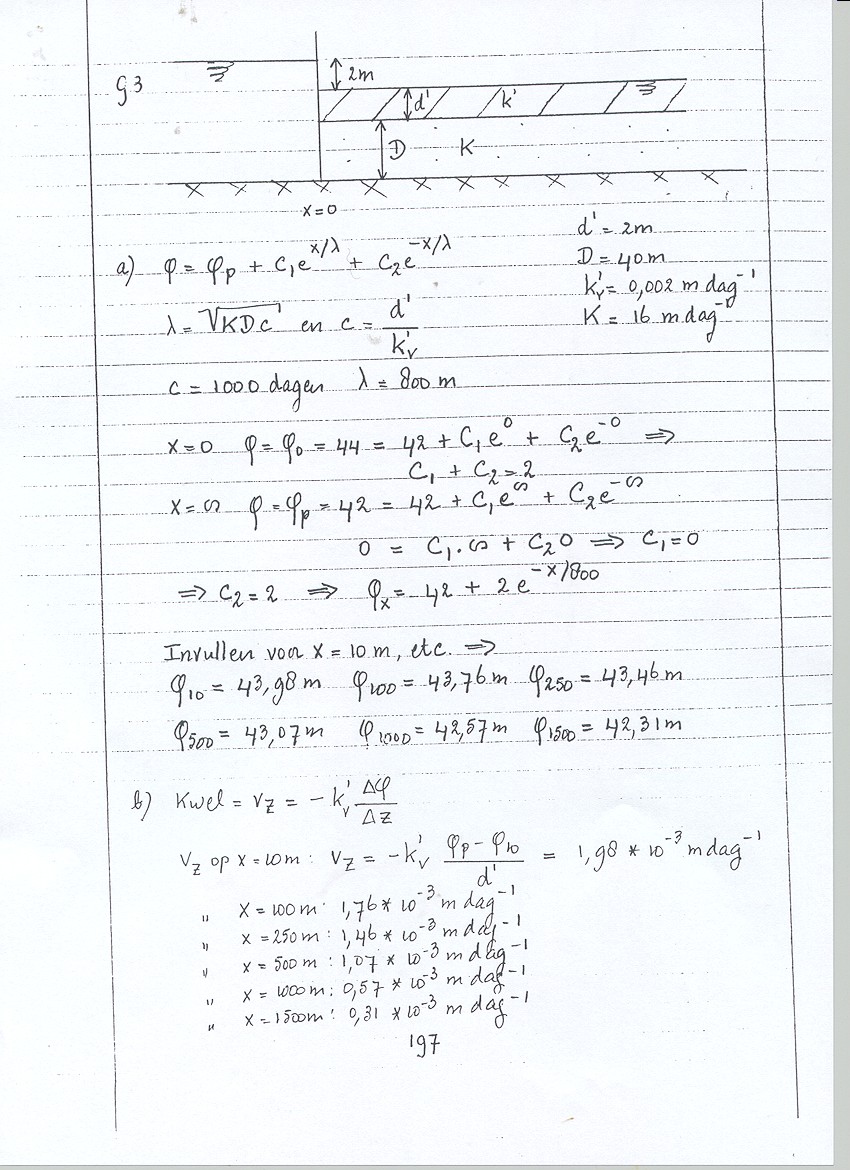 g3
2m
d' k'
D K
x=0
d' = 2m
D = 40m
k'v = 0,002 m dag⁻¹
K = 16 m dag⁻¹
a) φ = φp + C₁e^x/λ + C₂e^-x/λ
λ = √KDc en c = d'/k'v
c = 1000 dagen λ = 800 m
x=0 φ = φ₀ = 44 = 42 + C₁e⁰ + C₂e⁻⁰ ⇒
C₁ + C₂ = 2
x = ∞ φ = φp = 42 = 42 + C₁e^∞ + C₂e^-∞
0 = C₁.∞ + C₂0 ⇒ C₁=0
⇒ C₂=2 ⇒ φx = 42 + 2e^-x/800
Invullen voor x = 10 m, etc. ⇒
φ₁₀ = 43,98 m φ₁₀₀ = 43,76 m φ₂₅₀ = 43,46 m
φ₅₀₀ = 43,07 m φ₁₀₀₀ = 42,57 m φ₁₅₀₀ = 42,31 m
b) Kwel = vz = -k'v Δφ/Δz
Vz op x=10m: Vz = -k'v (φp - φ₁₀)/d' = 1,98 * 10⁻³ m dag⁻¹
" x = 100 m: 1,76 * 10⁻³ m dag⁻¹
" x = 250 m: 1,46 * 10⁻³ m dag⁻¹
" x = 500 m: 1,07 * 10⁻³ m dag⁻¹
" x = 1000 m: 0,57 * 10⁻³ m dag⁻¹
" x = 1500 m: 0,31 * 10⁻³ m dag⁻¹
197